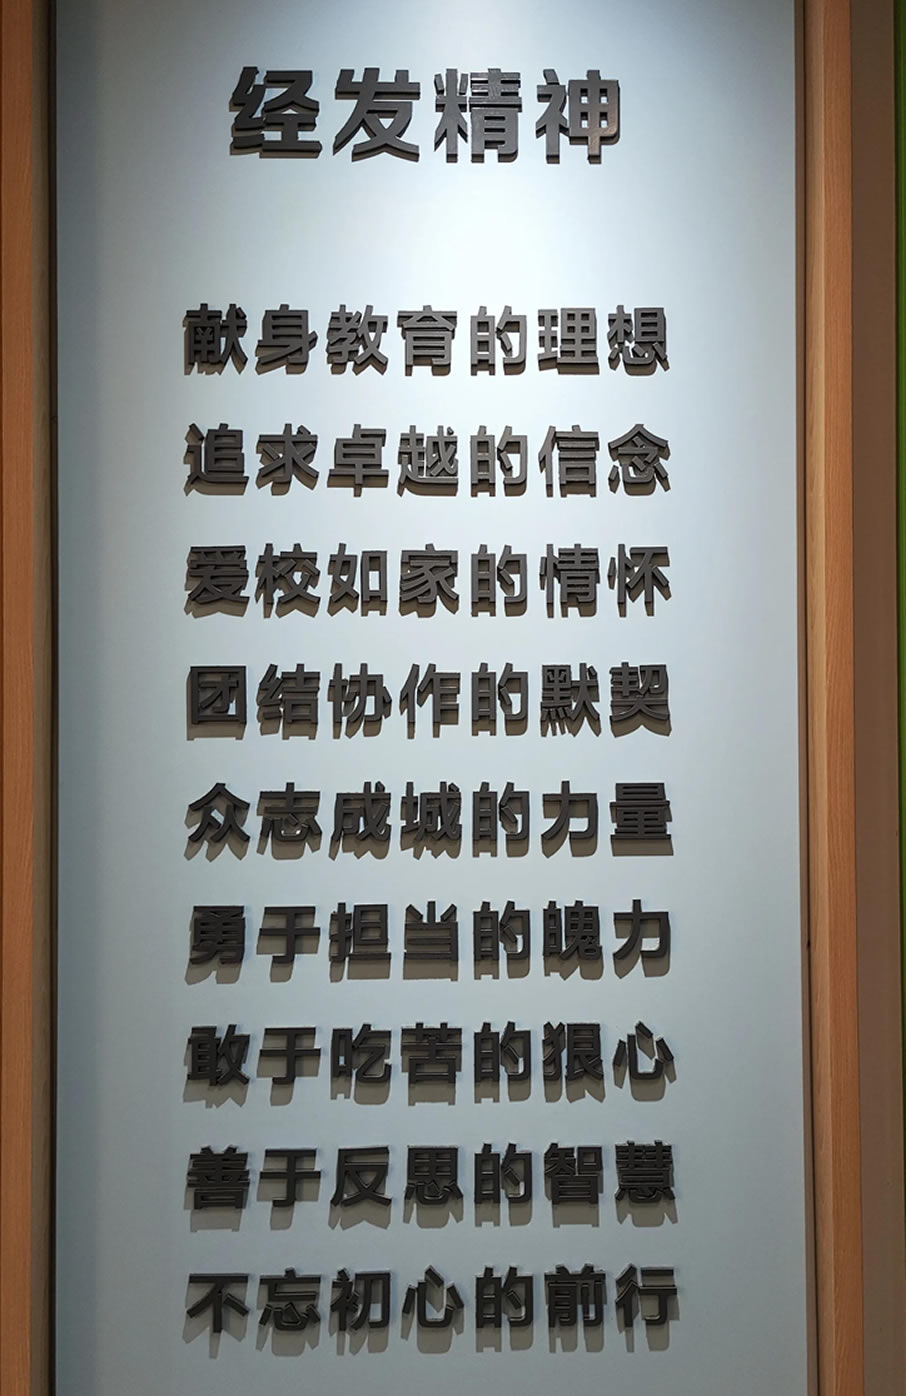 经发精神
献身教育的理想
追求卓越的信念
爱校如家的情怀
团结协作的默契
众志成城的力量
勇于担当的魄力
敢于吃苦的狠心
善于反思的智慧
不忘初心的前行